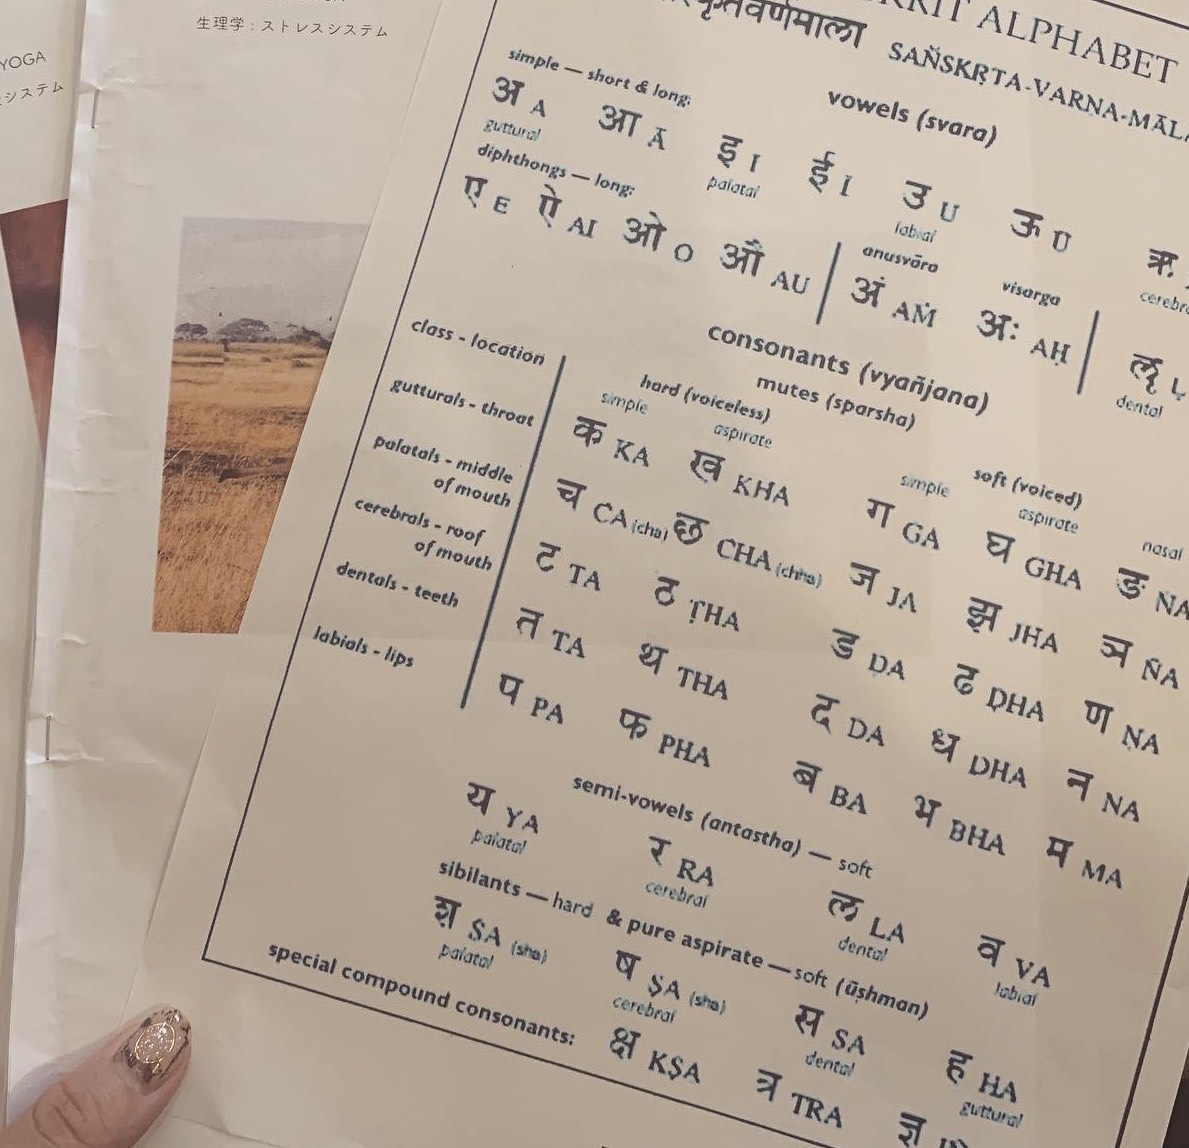 生理学：ストレスシステム
YOGA
システム
ALPHABET
वर्णमाला SAÑSKṚTA-VARṆA-MĀLĀ
vowels (svara)
simple — short & long:
अ A आ Ā इ I ई Ī उ U ऊ Ū ऋ
guttural palatal labial
diphthongs — long:
ए E ऐ AI ओ O औ AU अं AṀ अः AḤ ऌ
anusvāra visarga dental
consonants (vyañjana)
mutes (sparsha)
class - location hard (voiceless) soft (voiced)
simple aspirate simple aspirate nasal
gutturals - throat क KA ख KHA ग GA घ GHA ङ
palatals - middle of mouth च CA (cha) छ CHA (chha) ज JA झ JHA ञ ÑA
cerebrals - roof of mouth ट TA ठ ṬHA ड ḌA ढ ḌHA ण ṆA
dentals - teeth त TA थ THA द DA ध DHA न NA
labials - lips प PA फ PHA ब BA भ BHA म MA
semi-vowels (antastha) — soft
य YA र RA ल LA व VA
palatal cerebral dental labial
sibilants — hard & pure aspirate — soft (ūṣhman)
श ŚA (sha) ष ṢA (sha) स SA ह HA
palatal cerebral dental guttural
special compound consonants: क्ष KṢA त्र TRA ज्ञ